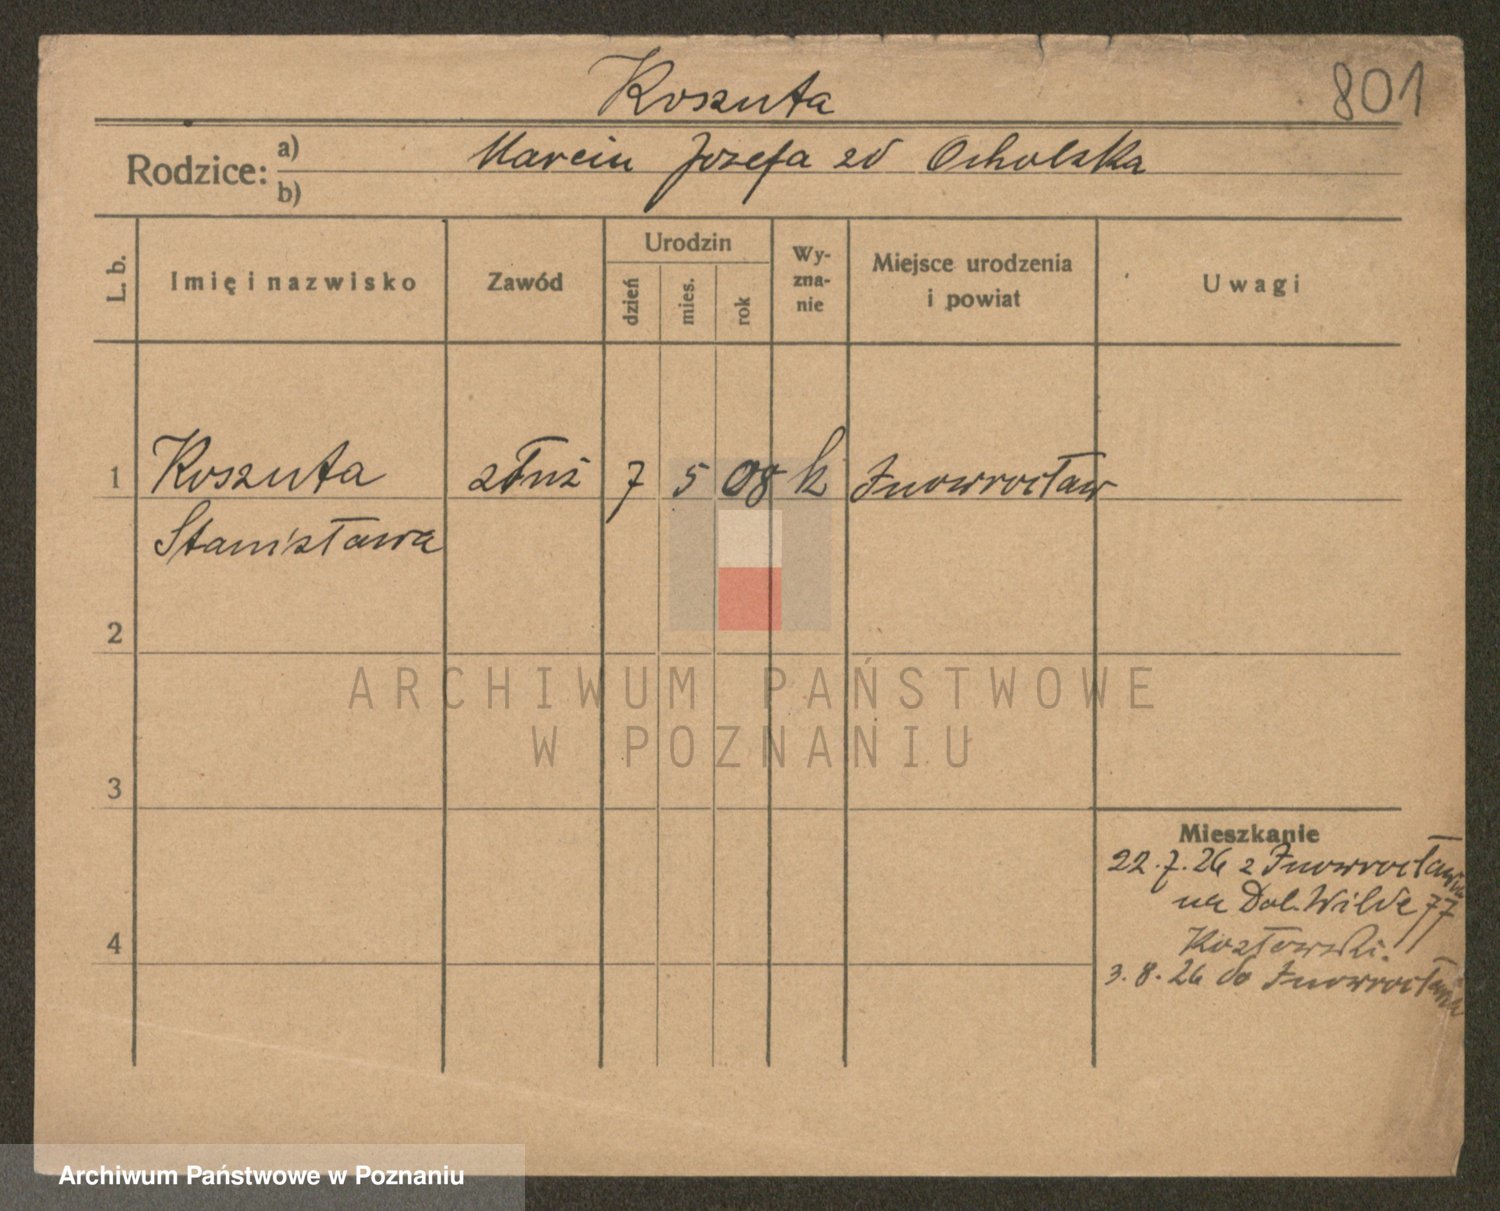 Koszuta
801
Rodzice: a) Marcin Józefa zd Ocholska
b)
L. b.
Imię i nazwisko
Zawód
Urodzin
dzień
mies.
rok
Wy-
zna-
nie
Miejsce urodzenia
i powiat
Uwagi
1 Koszuta służ 7 5 08 k Inowrocław
Stanisława
2
3
4
Mieszkanie
22.7.26 z Inowrocławia
na Dol. Wilde 77
Kozłowski.
3.8.26 do Inowrocławia
ARCHIWUM PAŃSTWOWE
W POZNANIU
Archiwum Państwowe w Poznaniu